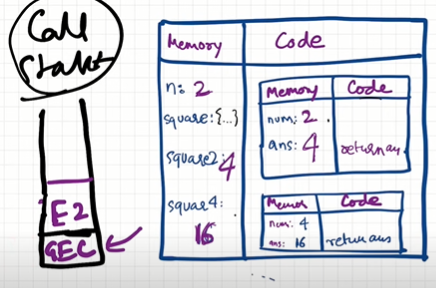 Call
Stalk
E2
GEC
Memory
Code
n: 2
square:{...}
square2: 4
square4:
16
Memory
Code
num: 2
ans: 4
return an
Memor
Code
num: 4
ans: 16
return ans